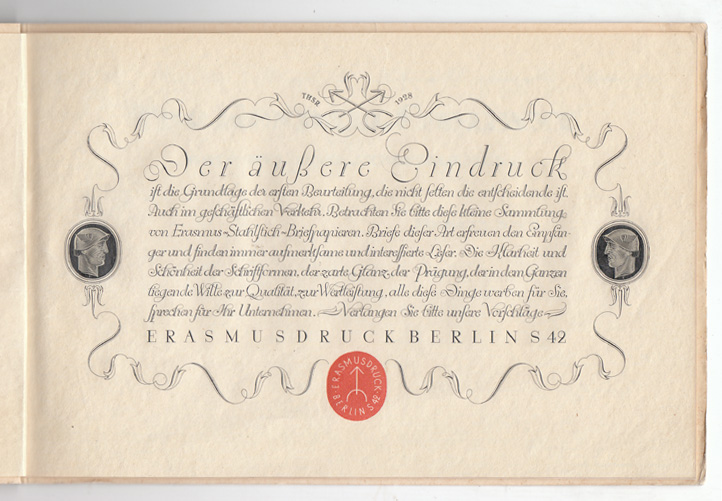 THSR 1928
Der äußere Eindruck
iſt die Grundlage der erſten Beurteilung, die nicht ſelten die entſcheidende iſt.
Auch im geſchäftlichen Verkehr. Betrachten Sie bitte dieſe kleine Sammlung
von Erasmus-Stahlſtich-Briefpapieren. Briefe dieſer Art erfreuen den Empfän-
ger und finden immer aufmerkſame und intereſſierte Leſer. Die Klarheit und
Schönheit der Schriftformen, der zarte Glanz der Prägung, der in dem Ganzen
liegende Wille zur Qualität, zur Wertleiſtung, alle dieſe Dinge werben für Sie,
ſprechen für Ihr Unternehmen. — Verlangen Sie bitte unſere Vorſchläge —
ERASMUSDRUCK BERLIN S 42
ERASMUSDRUCK
BERLIN S 42